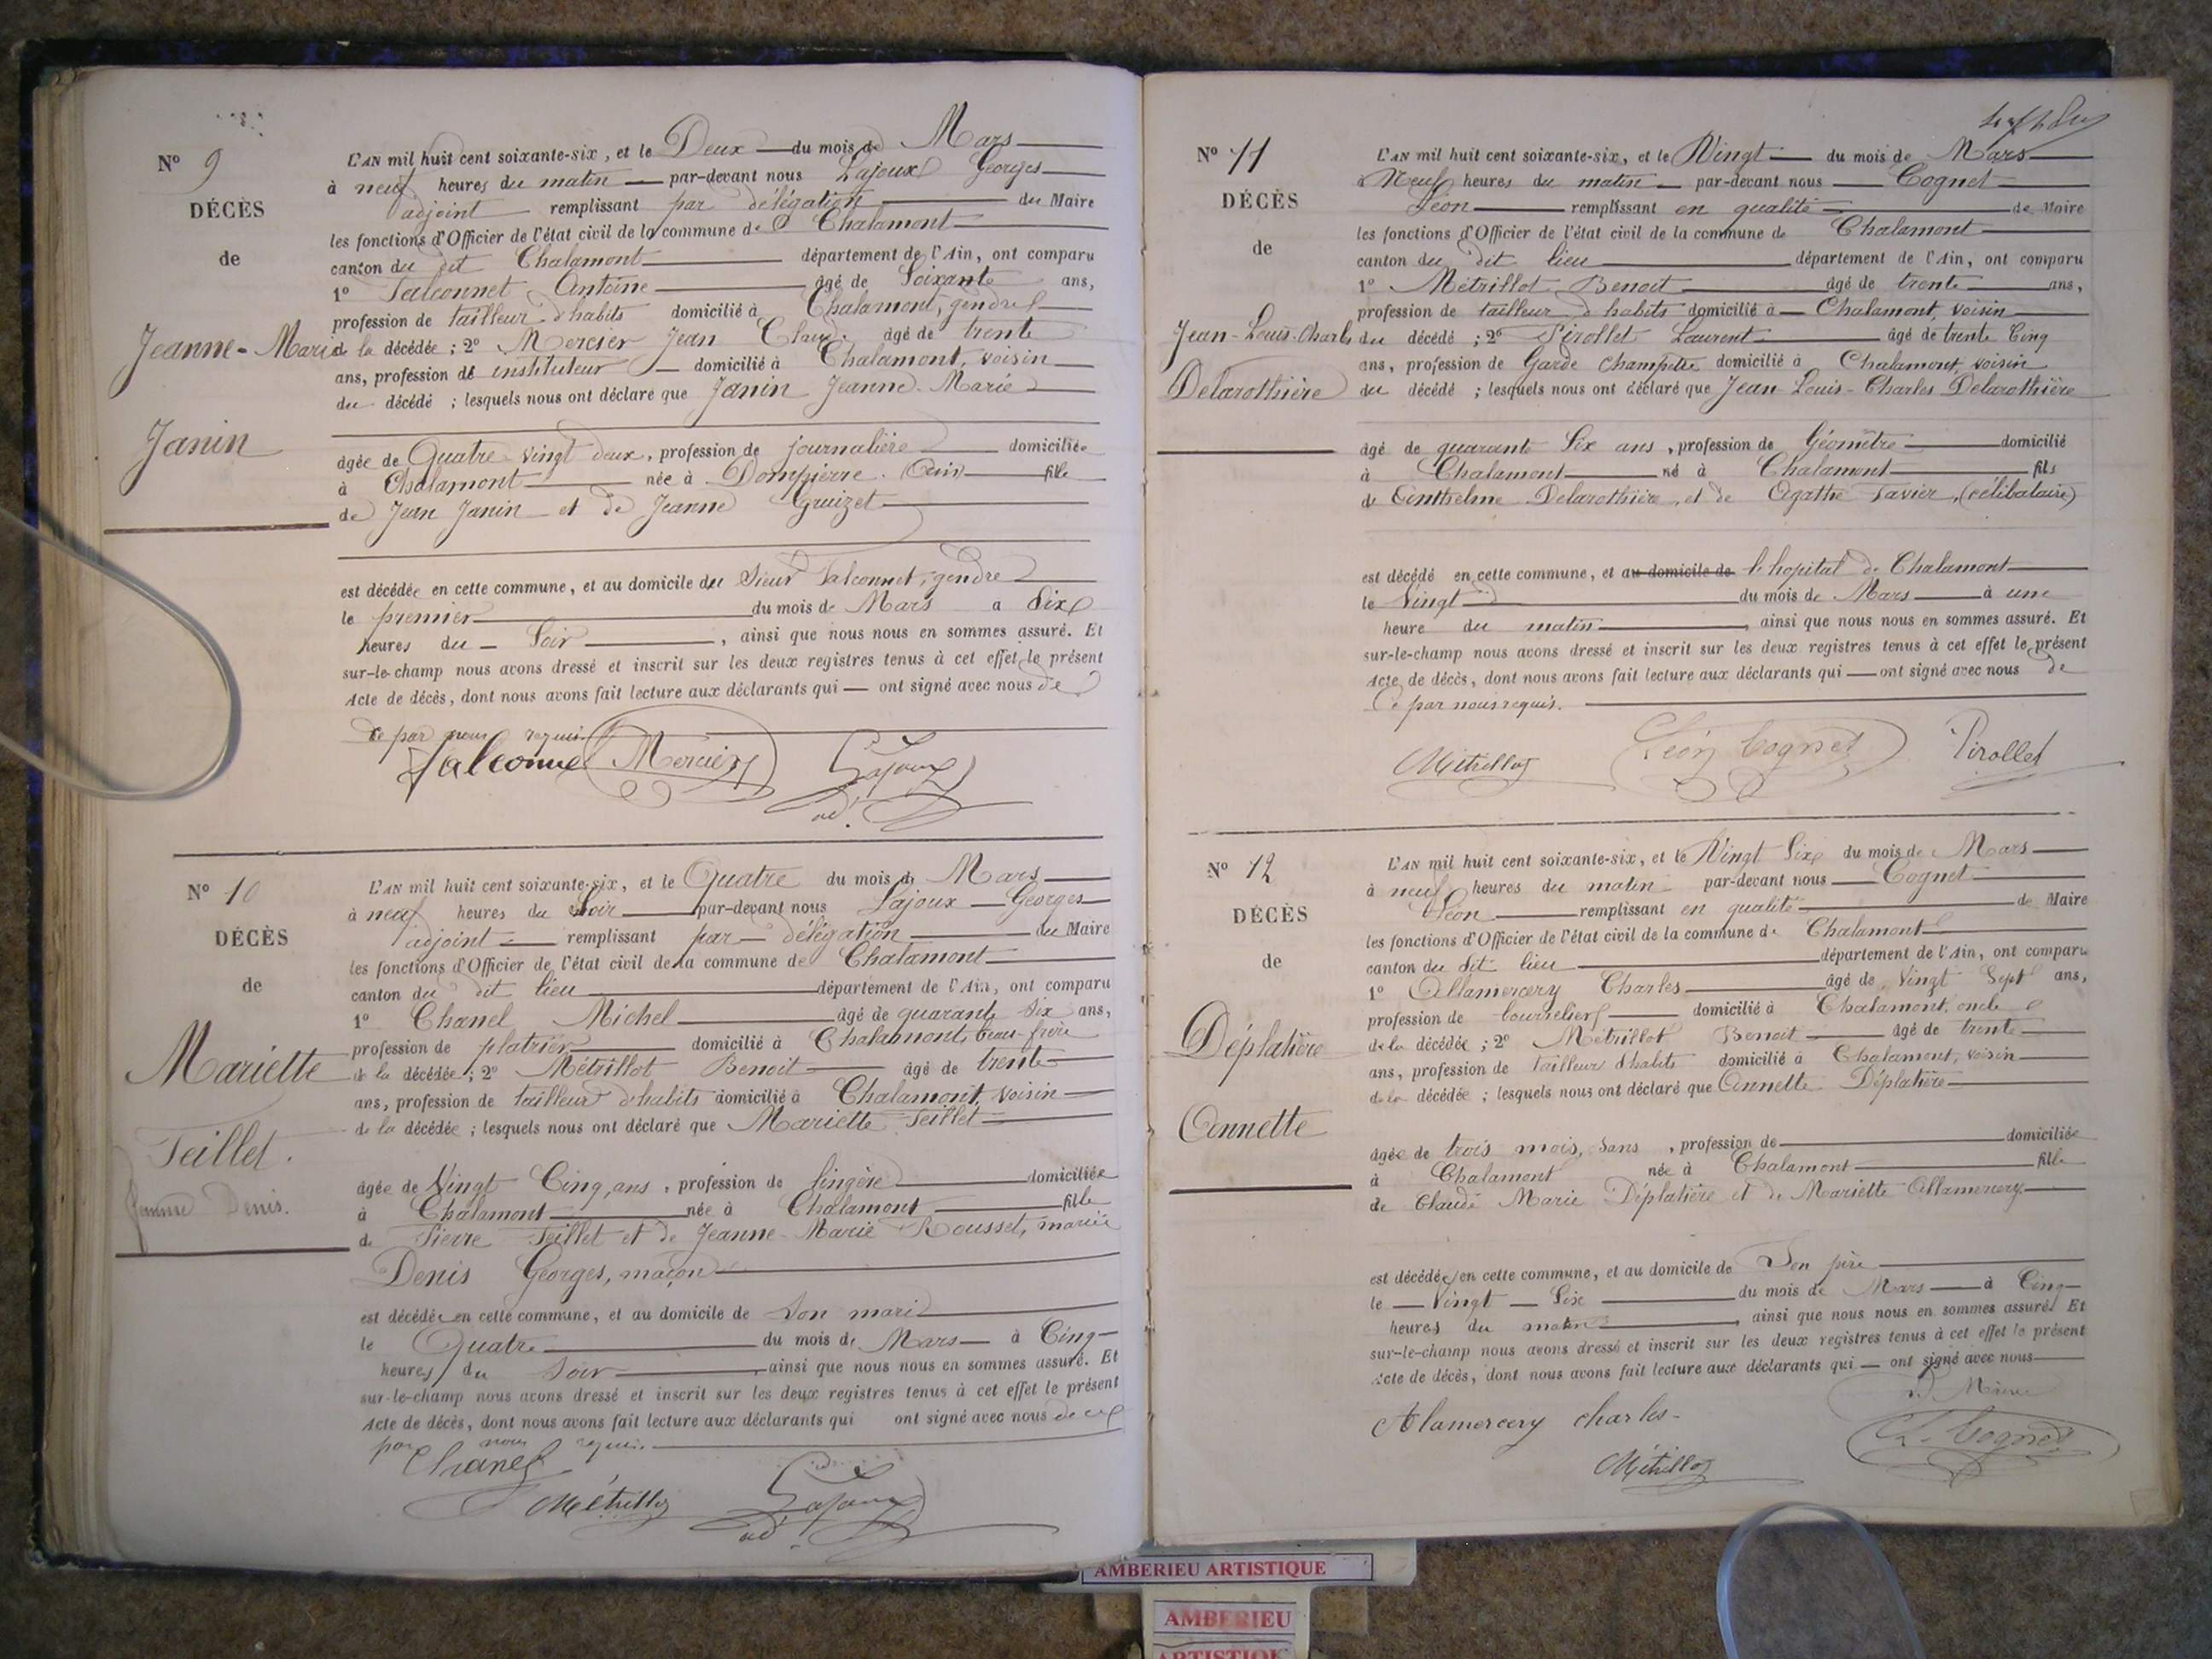 N° 9
DÉCÈS
de
Jeanne-Marie
Janin
L'AN mil huit cent soixante-six, et le Deux du mois de Mars
à neuf heures du matin par-devant nous Lajoux Georges
adjoint remplissant par délégation du Maire
les fonctions d'Officier de l'état civil de la commune de Chalamont
canton du dit Chalamont département de l'Ain, ont comparu
1° Falconnet Antoine âgé de Soixante ans,
profession de tailleur d'habits domicilié à Chalamont, gendre
de la décédée ; 2° Mercier Jean Claude âgé de trente
ans, profession de instituteur domicilié à Chalamont, voisin
du décédé ; lesquels nous ont déclaré que Janin Jeanne-Marie
âgée de Quatre vingt deux, profession de journalière domiciliée
à Chalamont née à Dompierre (Ain) fille
de Jean Janin et de Jeanne Gruizet
est décédée en cette commune, et au domicile du Sieur Falconnet, gendre
le premier du mois de Mars a Six
heures du Soir, ainsi que nous nous en sommes assuré. Et
sur-le-champ nous avons dressé et inscrit sur les deux registres tenus à cet effet le présent
Acte de décès, dont nous avons fait lecture aux déclarants qui ont signé avec nous de
ce par nous requis
Falconnet Mercier Lajoux
ad.
N° 10
DÉCÈS
de
Mariette
Teillet.
femme Denis.
L'AN mil huit cent soixante-six, et le Quatre du mois de Mars
à neuf heures du Soir par-devant nous Lajoux Georges
adjoint remplissant par délégation du Maire
les fonctions d'Officier de l'état civil de la commune de Chalamont
canton du dit lieu département de l'Ain, ont comparu
1° Chanel Michel âgé de quarante Six ans,
profession de platrier domicilié à Chalamont, beau-frère
de la décédée ; 2° Métrillot Benoit âgé de trente
ans, profession de tailleur d'habits domicilié à Chalamont, voisin
de la décédée ; lesquels nous ont déclaré que Mariette Teillet
âgée de Vingt Cinq, ans, profession de lingère domiciliée
à Chalamont née à Chalamont fille
de Pierre Teillet et de Jeanne-Marie Rousset, mariée
Denis Georges, maçon
est décédée en cette commune, et au domicile de Son mari
le Quatre du mois de Mars à Cinq
heures du Soir, ainsi que nous nous en sommes assuré. Et
sur-le-champ nous avons dressé et inscrit sur les deux registres tenus à cet effet le présent
Acte de décès, dont nous avons fait lecture aux déclarants qui ont signé avec nous de ce
par nous requis.
Chanel
Métrillot Lajoux
ad.
N° 11
DÉCÈS
de
Jean-Louis-Charles
Delarothière
L'AN mil huit cent soixante-six, et le Vingt du mois de Mars
à Neuf heures du matin par-devant nous Cognet
Léon remplissant en qualité de Maire
les fonctions d'Officier de l'état civil de la commune de Chalamont
canton du dit lieu département de l'Ain, ont comparu
1° Métrillot Benoit âgé de trente ans,
profession de tailleur d'habits domicilié à Chalamont, voisin
du décédé ; 2° Pirollet Laurent âgé de trente Cinq
ans, profession de Garde Champêtre domicilié à Chalamont, voisin
du décédé ; lesquels nous ont déclaré que Jean-Louis-Charles Delarothière
âgé de quarante Six ans, profession de Géomètre domicilié
à Chalamont né à Chalamont fils
de Anthelme Delarothière, et de Agathe Tavier, (célibataire)
est décédé en cette commune, et au domicile de l'hopital de Chalamont
le Vingt du mois de Mars à une
heure du matin, ainsi que nous nous en sommes assuré. Et
sur-le-champ nous avons dressé et inscrit sur les deux registres tenus à cet effet le présent
Acte de décès, dont nous avons fait lecture aux déclarants qui ont signé avec nous de
Ce par nous requis.
Métrillot Léon Cognet Pirollet
N° 12
DÉCÈS
de
Déplatière
Annette
L'AN mil huit cent soixante-six, et le Vingt Six du mois de Mars
à neuf heures du matin par-devant nous Cognet
Léon remplissant en qualité de Maire
les fonctions d'Officier de l'état civil de la commune de Chalamont
canton du dit lieu département de l'Ain, ont comparu
1° Allamercery Charles âgé de Vingt Sept ans,
profession de bourrelier domicilié à Chalamont, oncle
de la décédée ; 2° Métrillot Benoit âgé de trente
ans, profession de tailleur d'habits domicilié à Chalamont, voisin
de la décédée ; lesquels nous ont déclaré que Annette Déplatière
âgée de trois mois, sans, profession de domiciliée
à Chalamont née à Chalamont fille
de Claude Marie Déplatière et de Mariette Allamercery
est décédée en cette commune, et au domicile de Son père
le Vingt Six du mois de Mars à Cinq
heures du matin, ainsi que nous nous en sommes assuré. Et
sur-le-champ nous avons dressé et inscrit sur les deux registres tenus à cet effet le présent
Acte de décès, dont nous avons fait lecture aux déclarants qui ont signé avec nous
Alamercery charles
Métrillot L. Cognet
AMBERIEU ARTISTIQUE
AMBERIEU
ARTISTIQUE